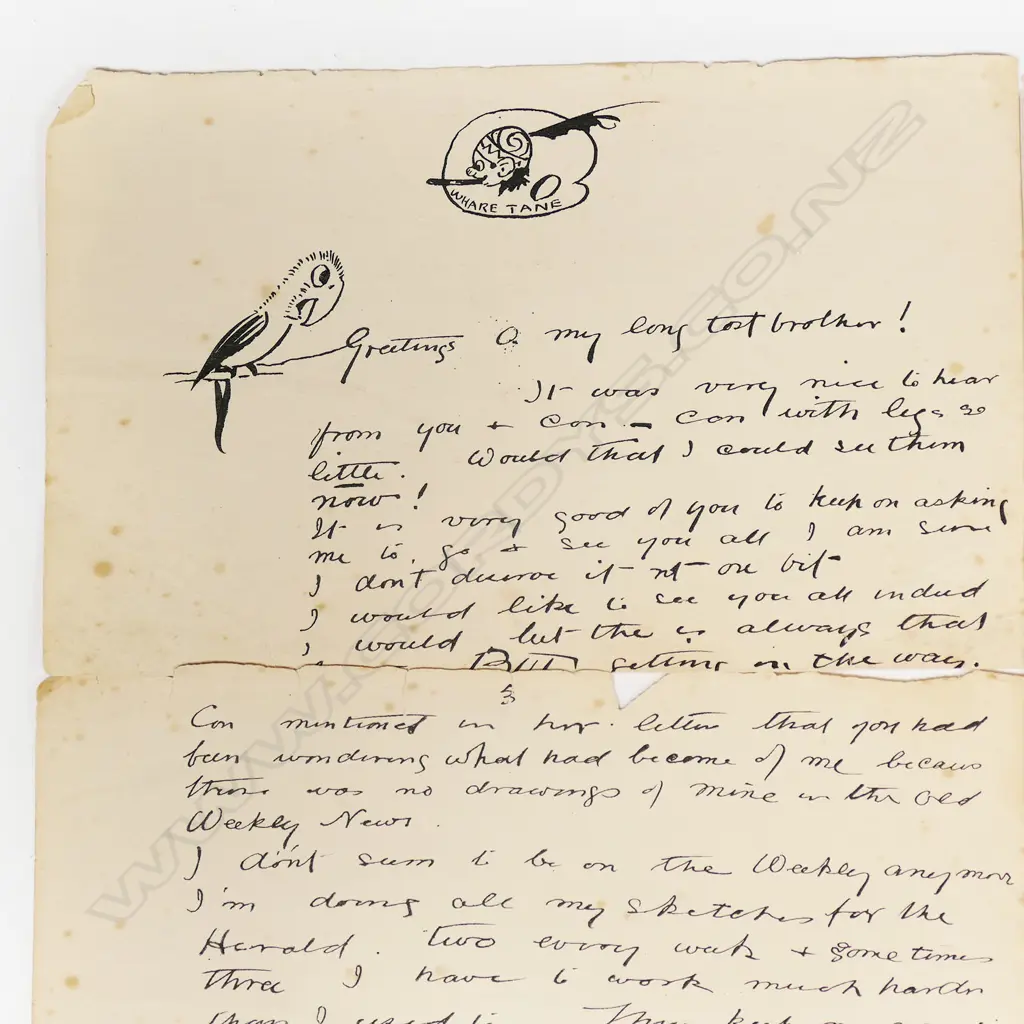 WHARE TANE
Greetings O my long lost brother!
It was very nice to hear
from you + Con - Con with legs so
little. Would that I could see them
now!
It is very good of you to keep on asking
me to go + see you all I am sure
I don't deserve it not one bit
I would like to see you all indeed
I would but the is always that
getting in the way.
3
Con mentioned in her letter that you had
been wondering what had become of me becaus
there was no drawings of mine in the old
Weekly News.
I don't seem to be on the Weekly anymore
I'm doing all my sketches for the
Herald. two every week + sometimes
three I have to work much harder
than I used to. They keep
WWW.CORDYS.CO.NZ